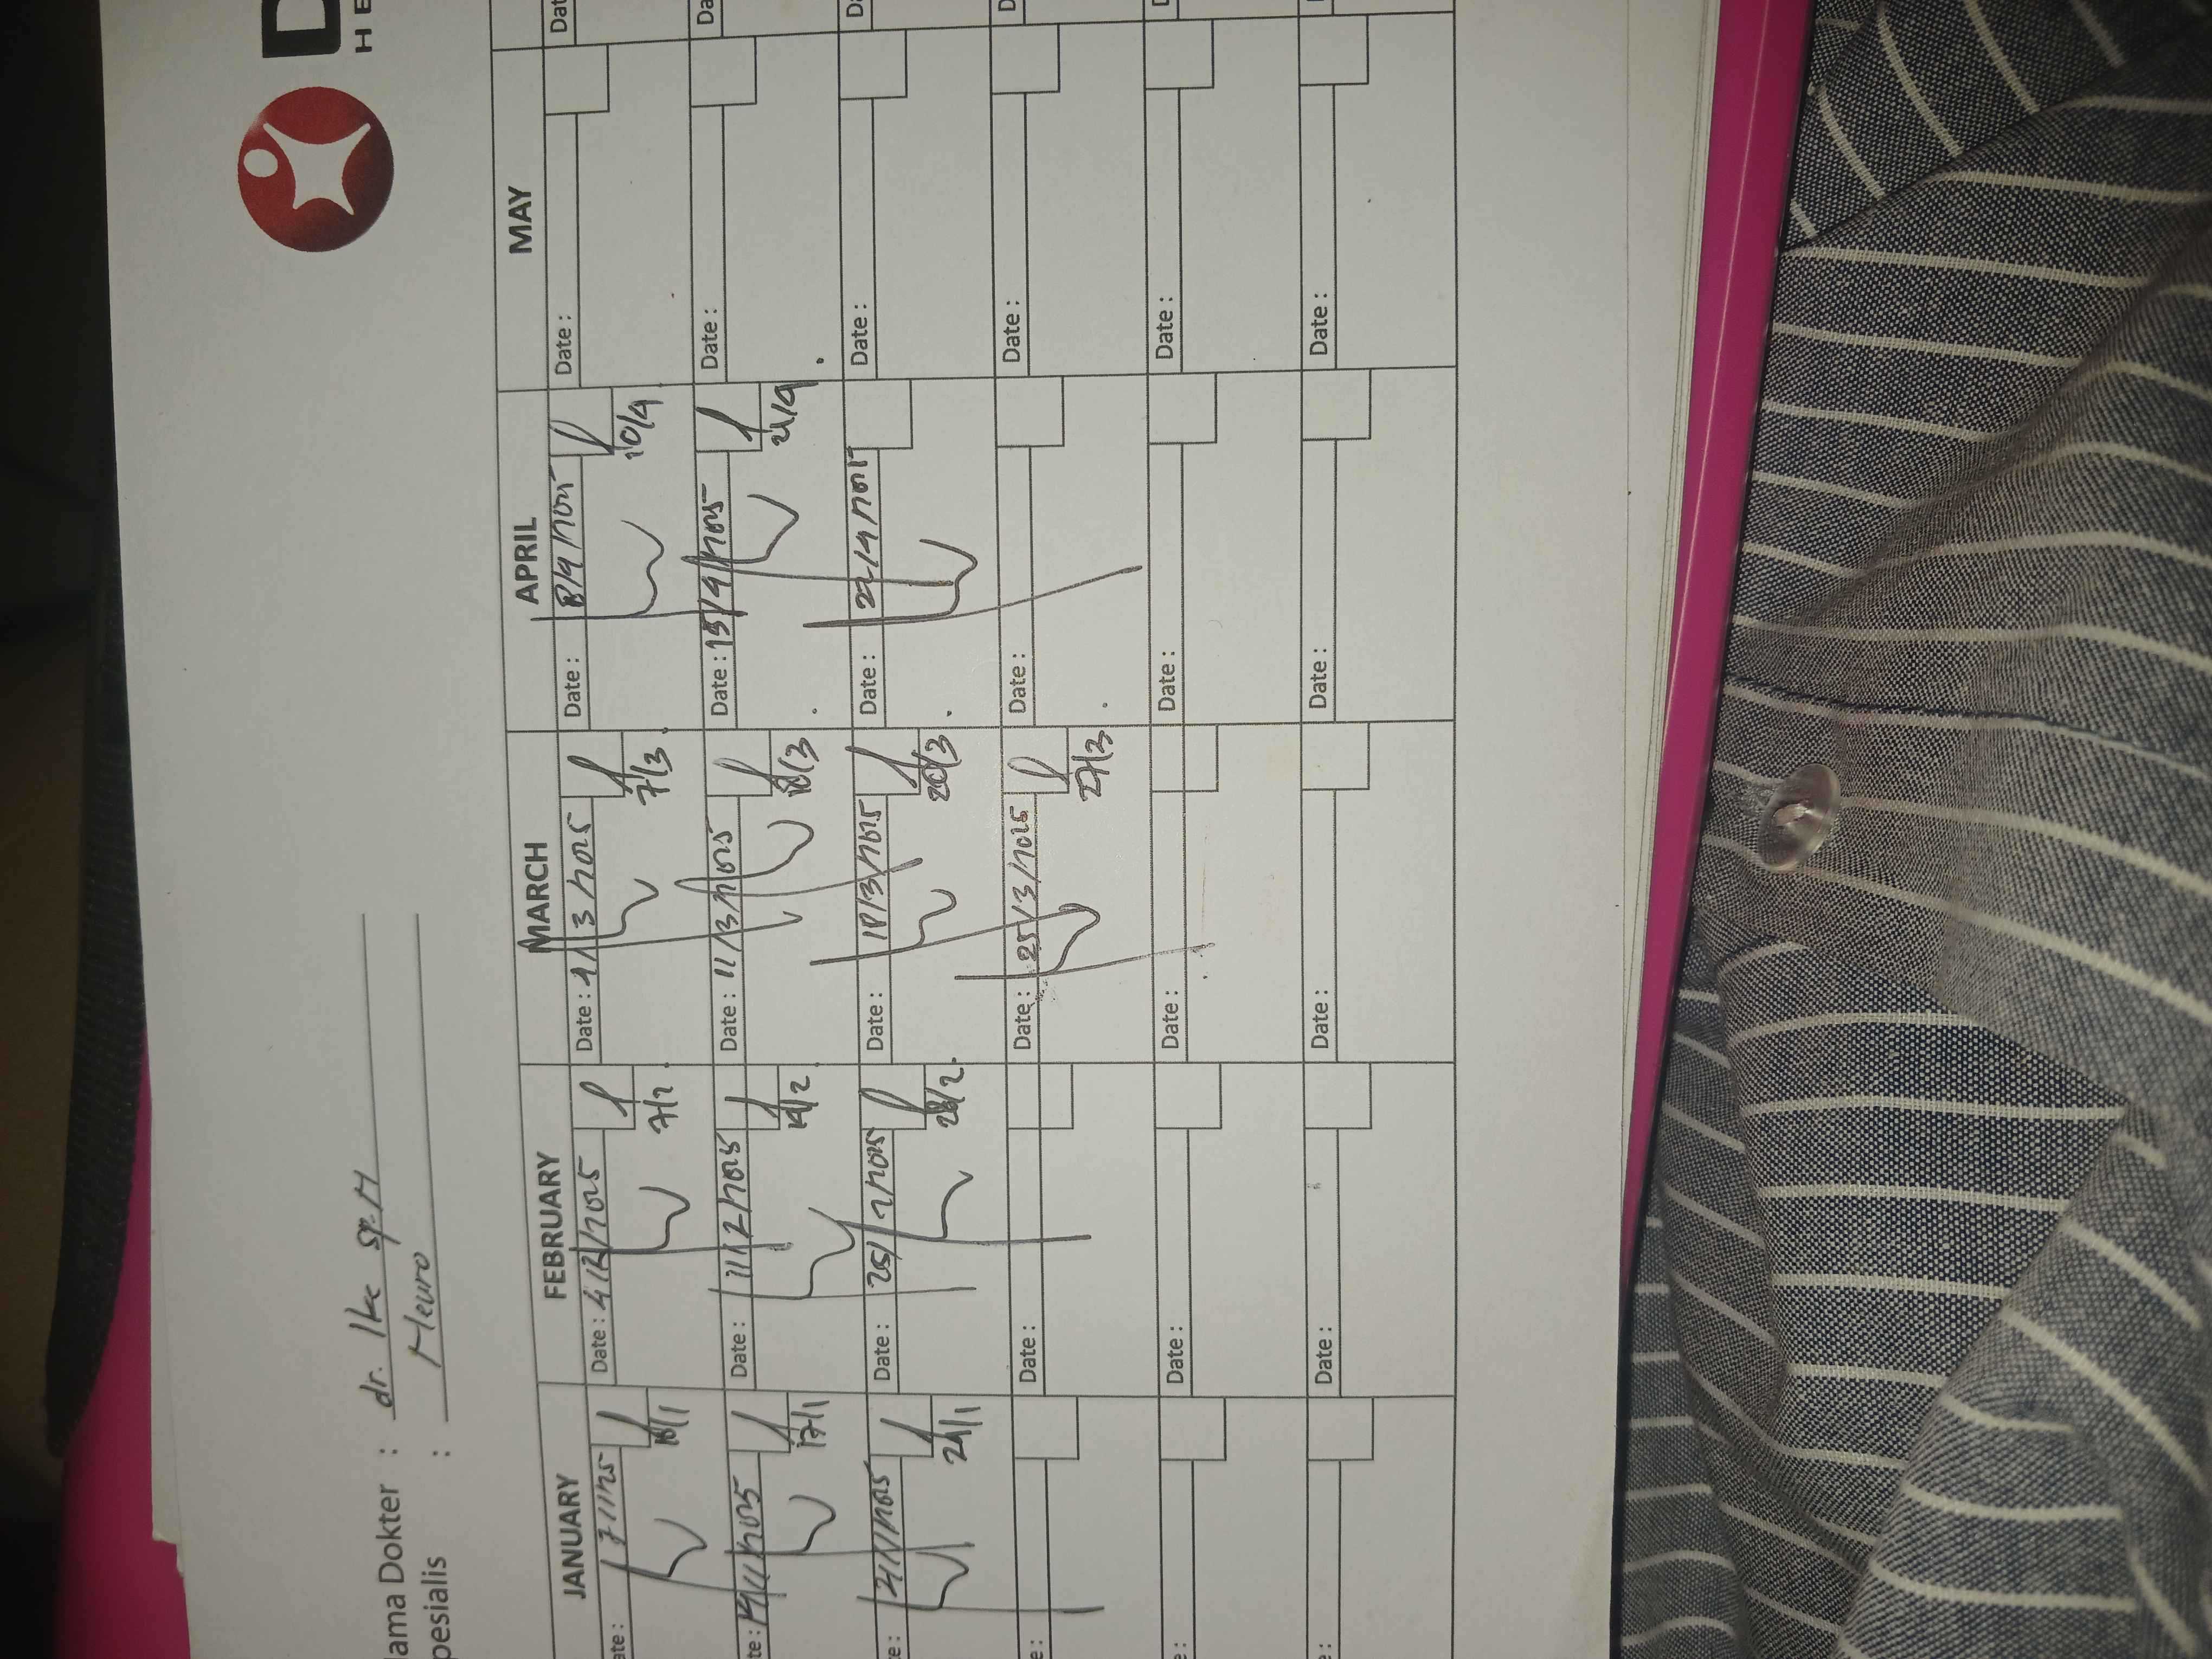 D
HE
ama Dokter : dr. Ike Sp.M
pesialis : Neuro
JANUARY FEBRUARY MARCH APRIL MAY
ate: 7/1/25 Date: 4/2/2025 Date: 4/3/2025 Date: 8/4/2025 Date: Dat
7/2 7/3 10/4
te: 14/1/2025 Date: 11/2/2025 Date: 11/3/2025 Date: 15/4/2025 Date: Da
17/1 14/2 21/4
te: 21/1/2025 Date: 25/2/2025 Date: 18/3/2025 Date: 22/4/2025 Date: Da
24/1 28/2 20/3
e: Date: Date: 25/3/2025 Date: Date: D
27/3
e: Date: Date: Date: Date:
e: Date: Date: Date: Date: